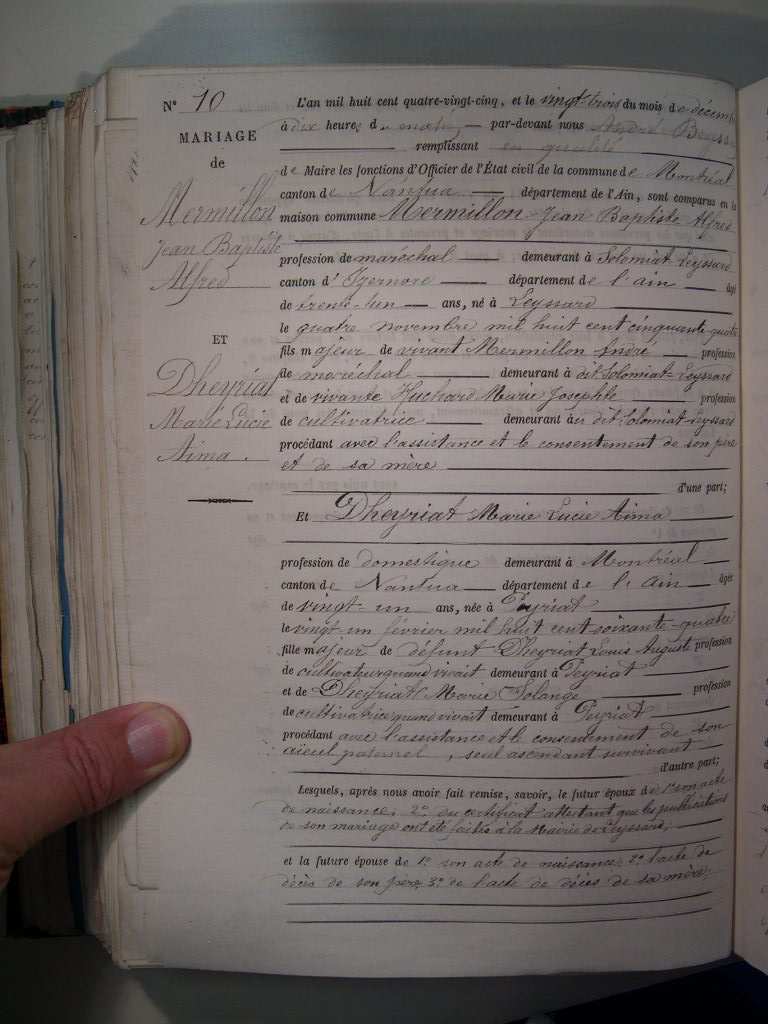 N° 10
MARIAGE
de
Mermillon
Jean Baptiste
Alfred
ET
Dheyriat
Marie Lucie
Aima.
L'an mil huit cent quatre-vingt-cinq, et le vingt-trois du mois de décemb
à dix heures du matin par-devant nous André
remplissant en qualité
de Maire les fonctions d'Officier de l'État civil de la commune de Montréal
canton de Nantua département de l'Ain, sont comparus en la
maison commune Mermillon Jean Baptiste Alfred
profession de maréchal demeurant à Solomiat Leyssard
canton d'Izernore département de l'ain âgé
de trente-un ans, né à Leyssard
le quatre novembre mil huit cent cinquante-quatre
fils majeur de vivant Mermillon André profession
de maréchal demeurant à dit Solomiat-Leyssard
et de vivante Huchard Marie Josephte profession
de cultivatrice demeurant à dit Solomiat-Leyssard
procédant avec l'assistance et le consentement de son père
et de sa mère
d'une part;
Et Dheyriat Marie Lucie Aima
profession de domestique demeurant à Montréal
canton de Nantua département de l'Ain âgée
de vingt-un ans, née à Peyriat
le vingt-un février mil huit cent soixante-quatre
fille majeur de défunt Dheyriat Louis Auguste profession
de cultivateur quand vivait demeurant à Peyriat
et de Dheyriat Marie Solange profession
de cultivatrice quand vivait demeurant à Peyriat
procédant avec l'assistance et le consentement de son
aïeul paternel, seul ascendant survivant
d'autre part;
Lesquels, après nous avoir fait remise, savoir, le futur époux de 1° son acte
de naissance, 2° du certificat attestant que les publications
de son mariage ont été faites à la Mairie de Leyssard,
et la future épouse de 1° son acte de naissance 2° l'acte de
décès de son père, 3° de l'acte de décès de sa mère.